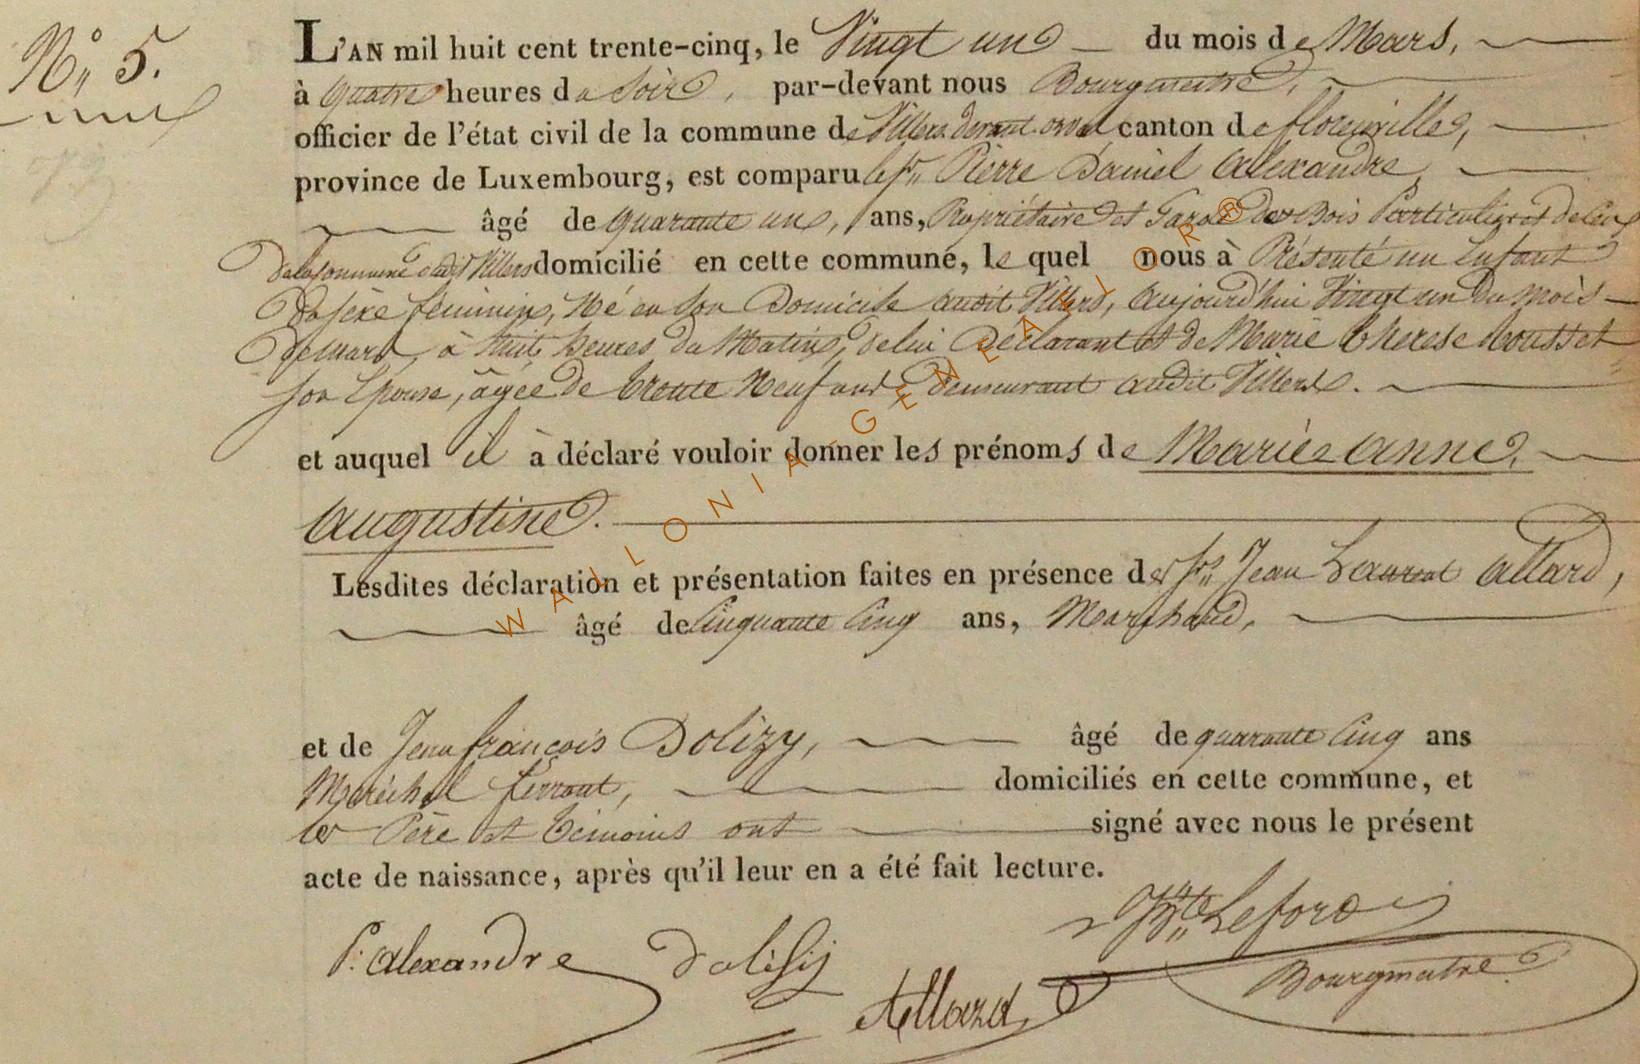 N.° 5.
L'AN mil huit cent trente-cinq, le Vingt un du mois de Mars,
à quatre heures du Soir, par-devant nous Bourgmestre,
officier de l'état civil de la commune de Villers devant orval canton de florenville,
province de Luxembourg, est comparu le Sr. Pierre Daniel Alexandre,
âgé de quarante un, ans, Propriétaire et Garde des Bois Particuliers et de Ceux
de la Commune dudit Villers domicilié en cette commune, le quel nous à Présenté un Enfant
du sexe féminin, Né en son Domicile audit Villers, aujourd'hui Vingt un du mois
de mars, à huit heures du Matin, de lui Déclarant et de Marie Therese
son Epouse, âgée de trente Neuf ans, demeurant audit Villers.
et auquel il à déclaré vouloir donner les prénoms de Marie anne
augustine.
Lesdites déclaration et présentation faites en présence des Sr. Jean Laurent Allard,
âgé de Cinquante Cinq ans, Marchand,
et de Jean françois Dolizy, âgé de quarante Cinq ans
Maréchal ferrant, domiciliés en cette commune, et
les Père et témoins ont signé avec nous le présent
acte de naissance, après qu'il leur en a été fait lecture.
P. alexandre Dolisij Allard Bte. Lefort
Bourgmestre
WALLONIA-GENEALOR®